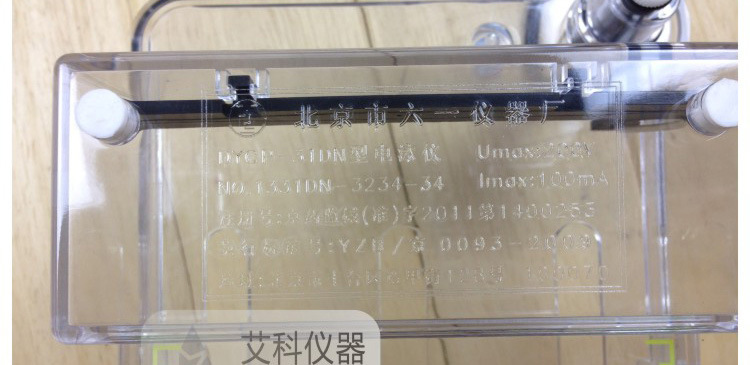 北京市六一仪器厂
DYCP-31DN型电泳仪 Umax:
NO.1331DN-3234-34 Imax:100mA
注册号:京药监械(准)字2011第1400253
执行标准号:Y/B/京 0093-2009
艾科仪器